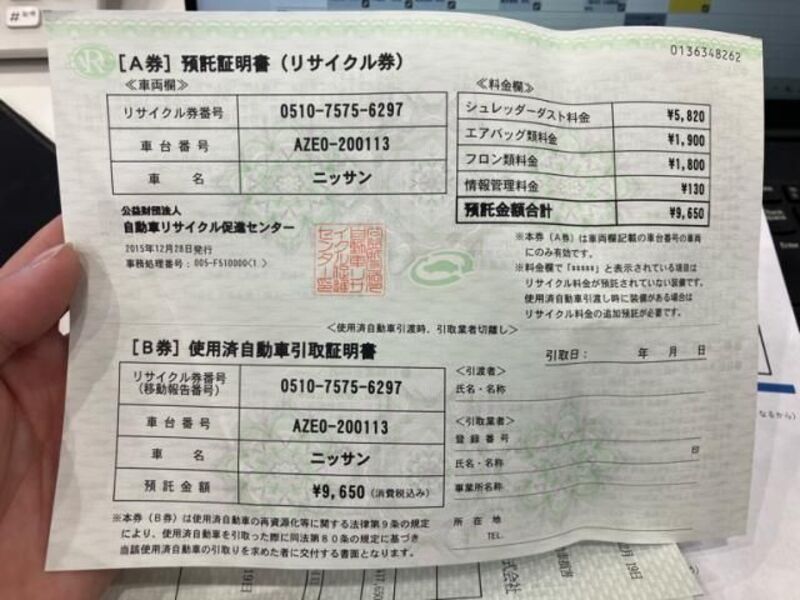 0136348262
[A券] 預託証明書(リサイクル券)
≪車両欄≫
リサイクル券番号 0510-7575-6297
車台番号 AZE0-200113
車名 ニッサン
≪料金欄≫
シュレッダーダスト料金 ¥5,820
エアバッグ類料金 ¥1,900
フロン類料金 ¥1,800
情報管理料金 ¥130
預託金額合計 ¥9,650
公益財団法人
自動車リサイクル促進センター
2015年12月28日発行
事務処理番号:005-F510000<1 >
※本券(A券)は車両欄記載の車台番号の車両
にのみ有効です。
※料金欄で「*****」と表示されている項目は
リサイクル料金が預託されていない装備です。
使用済自動車引渡し時に装備がある場合は
リサイクル料金の追加預託が必要です。
<使用済自動車引渡時、引取業者切離し>
[B券] 使用済自動車引取証明書
リサイクル券番号
(移動報告番号) 0510-7575-6297
車台番号 AZE0-200113
車名 ニッサン
預託金額 ¥9,650(消費税込み)
引取日: 年 月 日
<引渡者>
氏名・名称
<引取業者>
登録番号
氏名・名称 印
事業所名称
所在地
TEL.
※本券(B券)は使用済自動車の再資源化等に関する法律第9条の規定
により、使用済自動車を引取った際に同法第80条の規定に基づき
当該使用済自動車の引取りを求めた者に交付する書面となります。